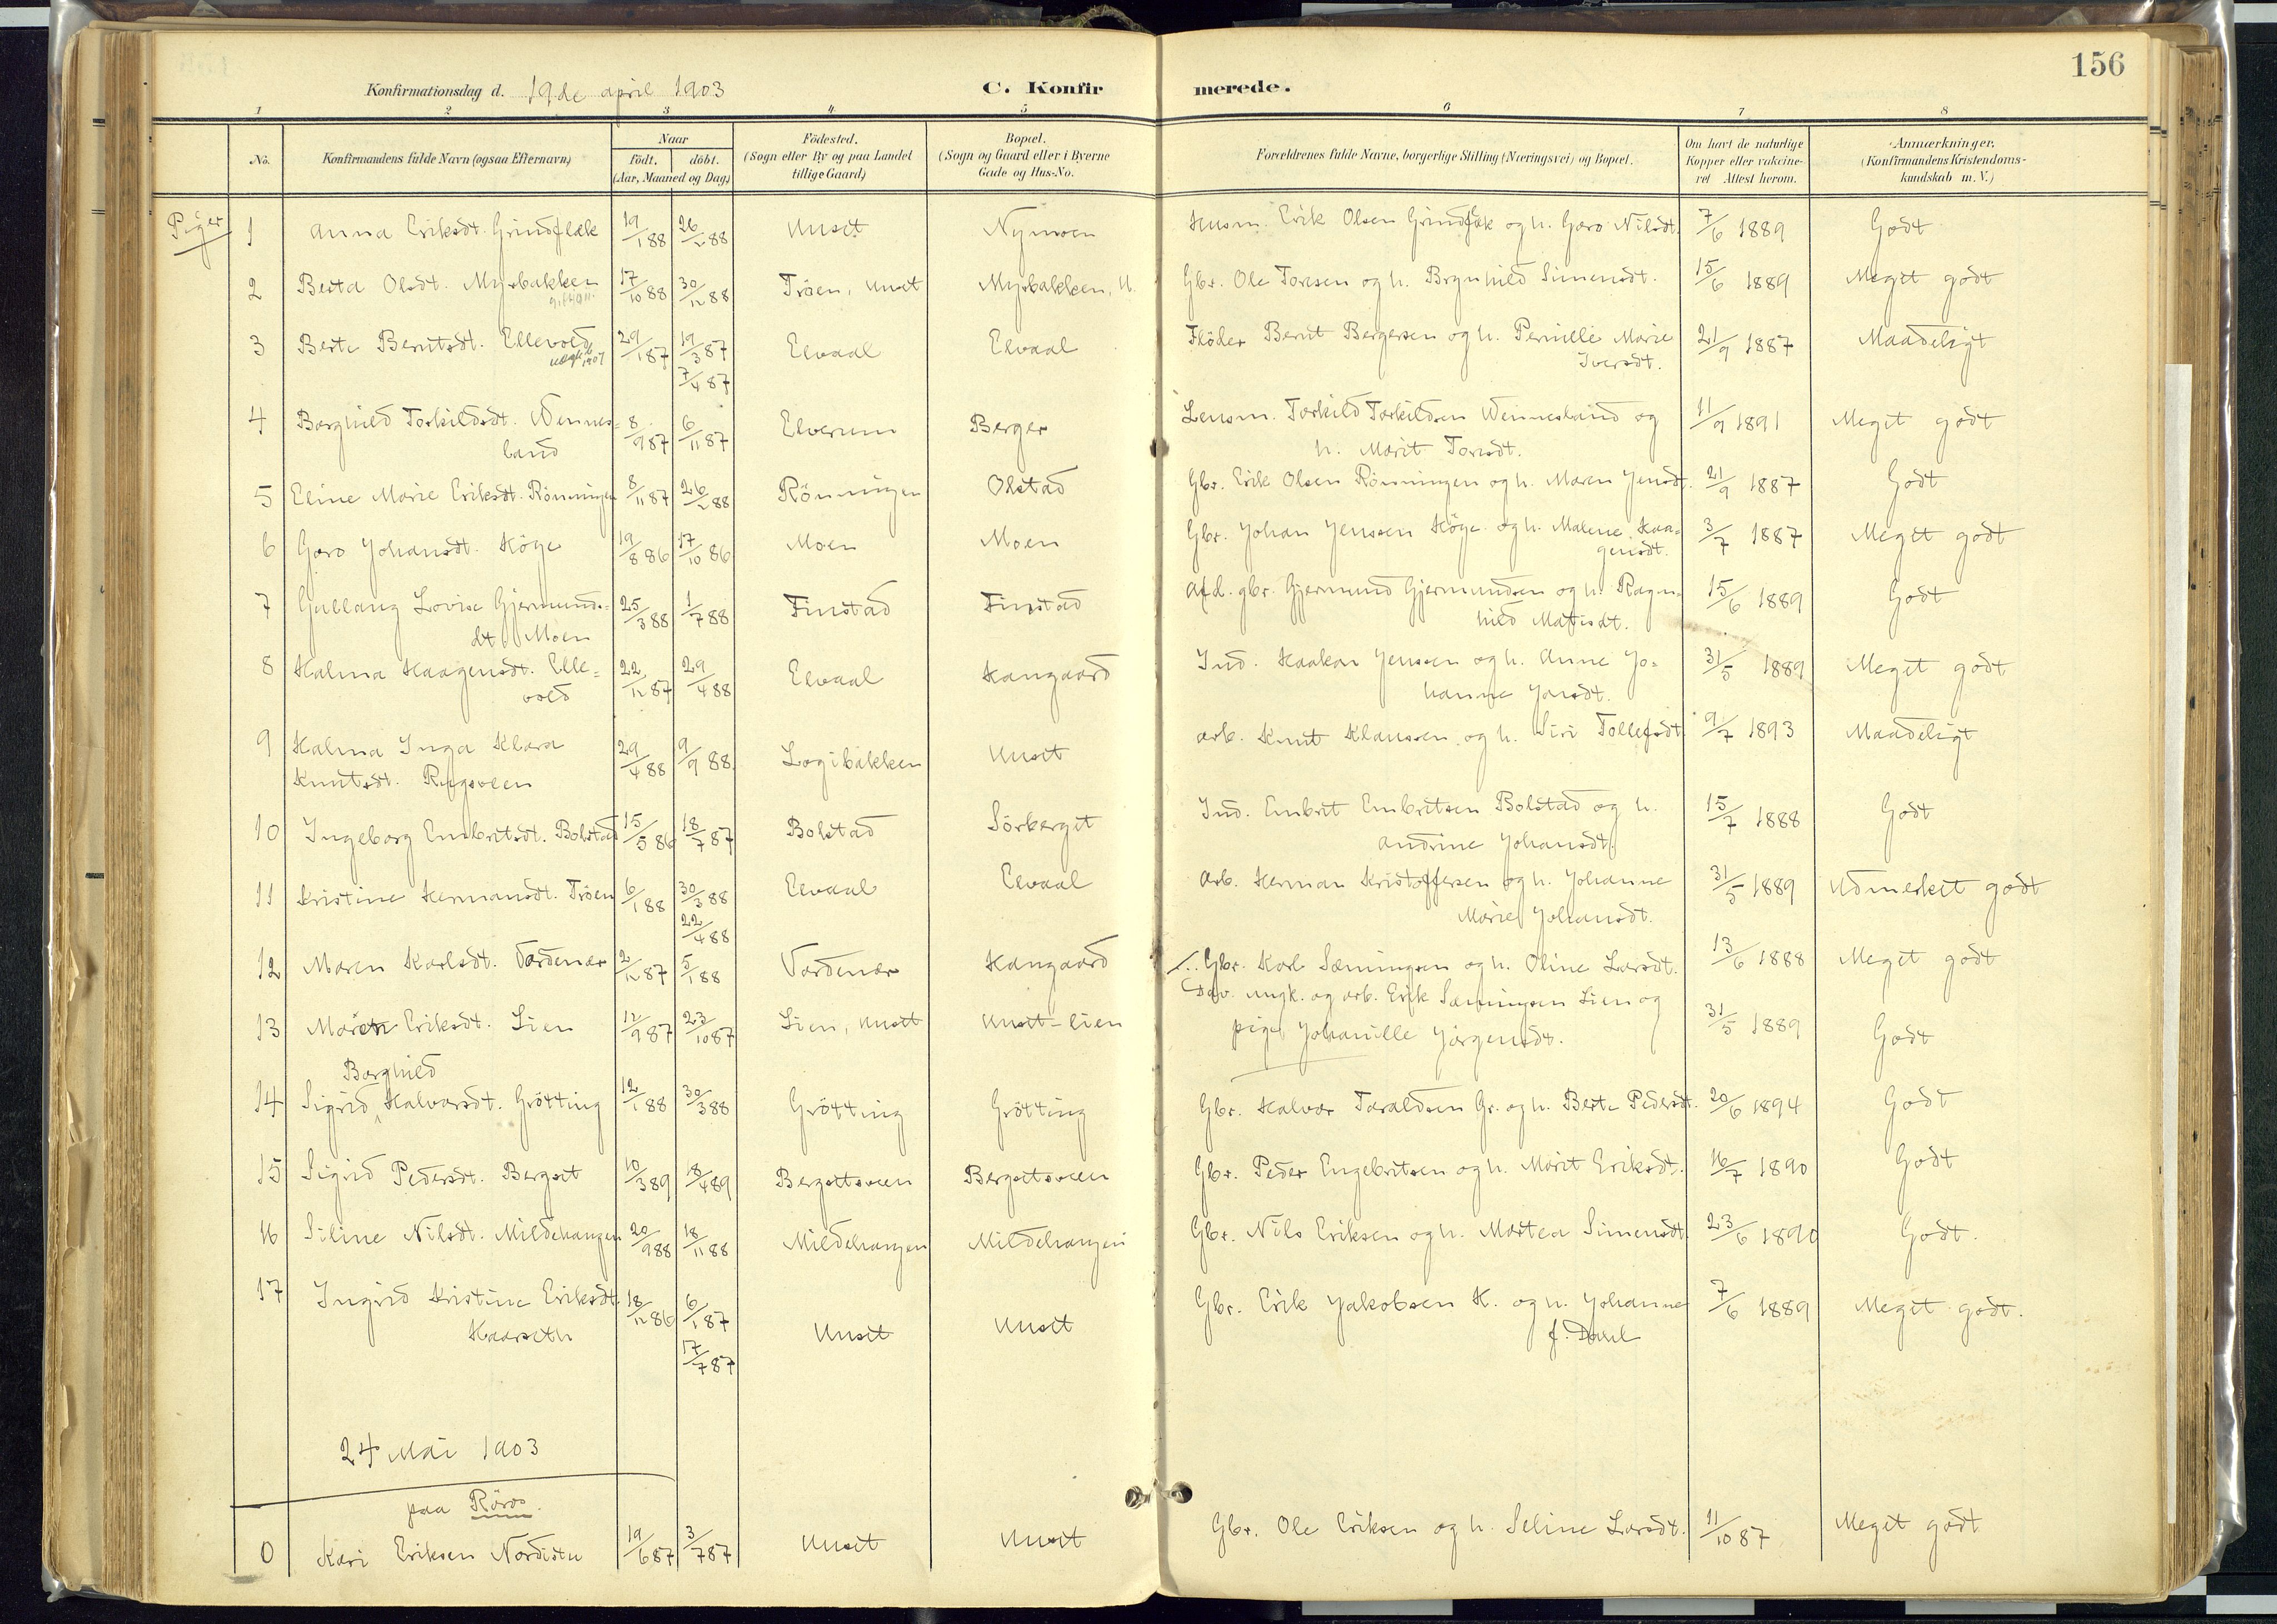 156
Konfirmationsdag d. 19de april 1903 C. Konfirmerede.
1 2 3 4 5 6 7 8
No. Konfirmandens fulde Navn (ogsaa Efternavn) Naar födt. döbt. (Aar, Maaned og Dag.) Födested. (Sogn eller By og paa Landet tillige Gaard) Bopæl. (Sogn og Gaard eller i Byerne Gade og Hus-No. Forældrenes fulde Navne, borgerlige Stilling (Næringsvei) og Bopæl. Om havt de naturlige Kopper eller vakcineret Attest herom. Anmærkninger. (Konfirmandens Kristendomskundskab m. V.)
Piger
1 Anna Eriksdt. Grindflæk 19/1 88 26/2 88 Unset Nymoen Husm. Erik Olsen Grindflæk og h. Goro Nilsdt. 7/6 1889 Godt
2 Berta Olsdt. Myrbakken 17/10 88 30/12 88 Tröen, Unset Myrbakken, U. Gbr. Ole Toresen og h. Brynhild Simensdt. 15/6 1889 Meget godt
3 Berte Berntsdt. Ellevold 29/1 87 19/3 87 Elvaal Elvaal Flöder Bernt Bergersen og h. Pernille Marie 21/9 1887 Maadeligt
1907 7/4 87 Iversdt.
4 Borghild Torkildsdt. Wennes- 8/9 87 6/11 87 Elverum Berger Lensm. Torkild Torkildsen Wennesland og 11/9 1891 Meget godt
land h. Marit Toresdt.
5 Eline Marie Eriksdt. Rönningen 8/11 87 26/2 88 Rönningen Olstad Gbr. Erik Olsen Rönningen og h. Maren Jensdt. 21/9 1887 Godt
6 Goro Johansdt. Höge 19/8 86 17/10 86 Moen Moen Gbr. Johan Jenssen Höge og h. Malene Haa- 3/7 1887 Meget godt
gensdt.
7 Gullaug Lovise Gjermunds- 25/3 88 1/7 88 Finstad Finstad Afd. gbr. Gjermund Gjermundsen og h. Ragn- 15/6 1889 Godt
dt. Moen hild Matisdt.
8 Halma Haagensdt. Elle- 22/12 87 29/4 88 Elvaal Hangaard Ind. Haakon Jenssen og h. Anne Jo- 31/5 1889 Meget godt
vold hanne Jonsdt.
9 Halma Inga Klara 29/4 88 9/9 88 Logibakken Unset Arb. Knut Klaussen og h. Siri Tollefsdt. 9/7 1893 Maadeligt
Knutsdt. Rugsveen
10 Ingeborg Embretsdt. Bolstad 15/5 86 18/7 87 Bolstad Sörberget Ind. Embret Embretsen Bolstad og h. 15/7 1888 Godt
Andrine Johansdt.
11 Kristine Hermansdt. Tröen 6/1 88 30/3 88 Elvaal Elvaal Arb. Herman Kristoffersen og h. Johanne 31/5 1889 Udmerket godt
22/4 88 Marie Johansdt.
12 Maren Karlsdt. Vordenær 2/12 87 5/1 88 Vordenær Hangaard Gbr. Karl Sæmingsen og h. Oline Larsdt. 13/6 1888 Meget godt
13 Maren Eriksdt. Lien 12/9 87 23/10 87 Lien, Unset Unset-lien Dav. ungk. og arb. Erik Sæmingsen Lien og 31/5 1889 Godt
pige Johanille Jörgensdt.
Borghild
14 Sigrid Halvorsdt. Grötting 12/1 88 30/3 88 Grötting Grötting Gbr. Halvor Taraldsen Gr. og h. Berte Pedersdt. 20/6 1894 Godt
15 Sigrid Pedersdt. Bergset 10/3 89 18/4 89 Bergsetsveen Bergsetsveen Gbr. Peder Engebritsen og h. Marit Eriksdt. 16/7 1890 Godt
16 Siline Nilsdt. Mildehaugen 20/9 88 18/11 88 Mildehaugen Mildehaugen Gbr. Nils Eriksen og h. Martea Simensdt. 23/6 1890 Godt.
17 Ingrid Kristine Eriksdt. 18/12 86 6/1 87 Unset Unset Gbr. Erik Jakobsen H. og h. Johanne 7/6 1889 Meget godt.
Haarseth 17/7 87
24 Mai 1903
paa Röros.
0 Kari Eriksen Nordistu 19/6 87 3/7 87 Unset Unset Gbr. Ole Eriksen og h. Seline Larsdt. 11/10 87 Meget godt